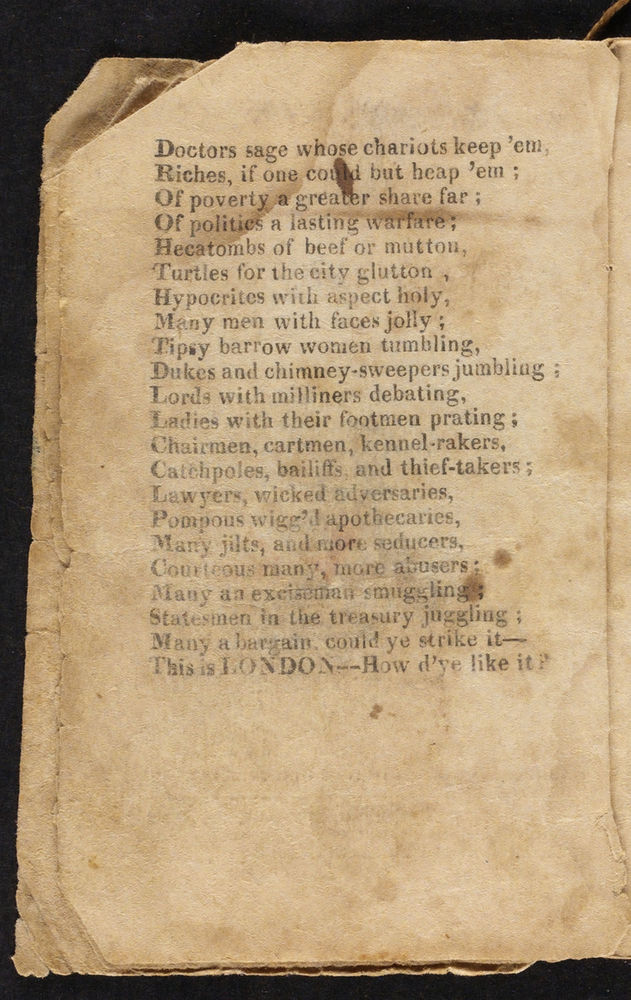 Doctors sage whose chariots keep 'em,
Riches, if one could but heap 'em ;
Of poverty a greater share far ;
Of politics a lasting warfare ;
Hecatombs of beef or mutton,
Turtles for the city glutton ,
Hypocrites with aspect holy,
Many men with faces jolly ;
Tipsy barrow women tumbling,
Dukes and chimney-sweepers jumbling ;
Lords with milliners debating,
Ladies with their footmen prating ;
Chairmen, cartmen, kennel-rakers,
Catchpoles, bailiffs, and thief-takers ;
Lawyers, wicked adversaries,
Pompous wigg'd apothecaries,
Many jilts, and more seducers,
Courteous many, more abusers ;
Many an exciseman smuggling ;
Statesmen in the treasury juggling ;
Many a bargain, could ye strike it—
This is LONDON--How d'ye like it?